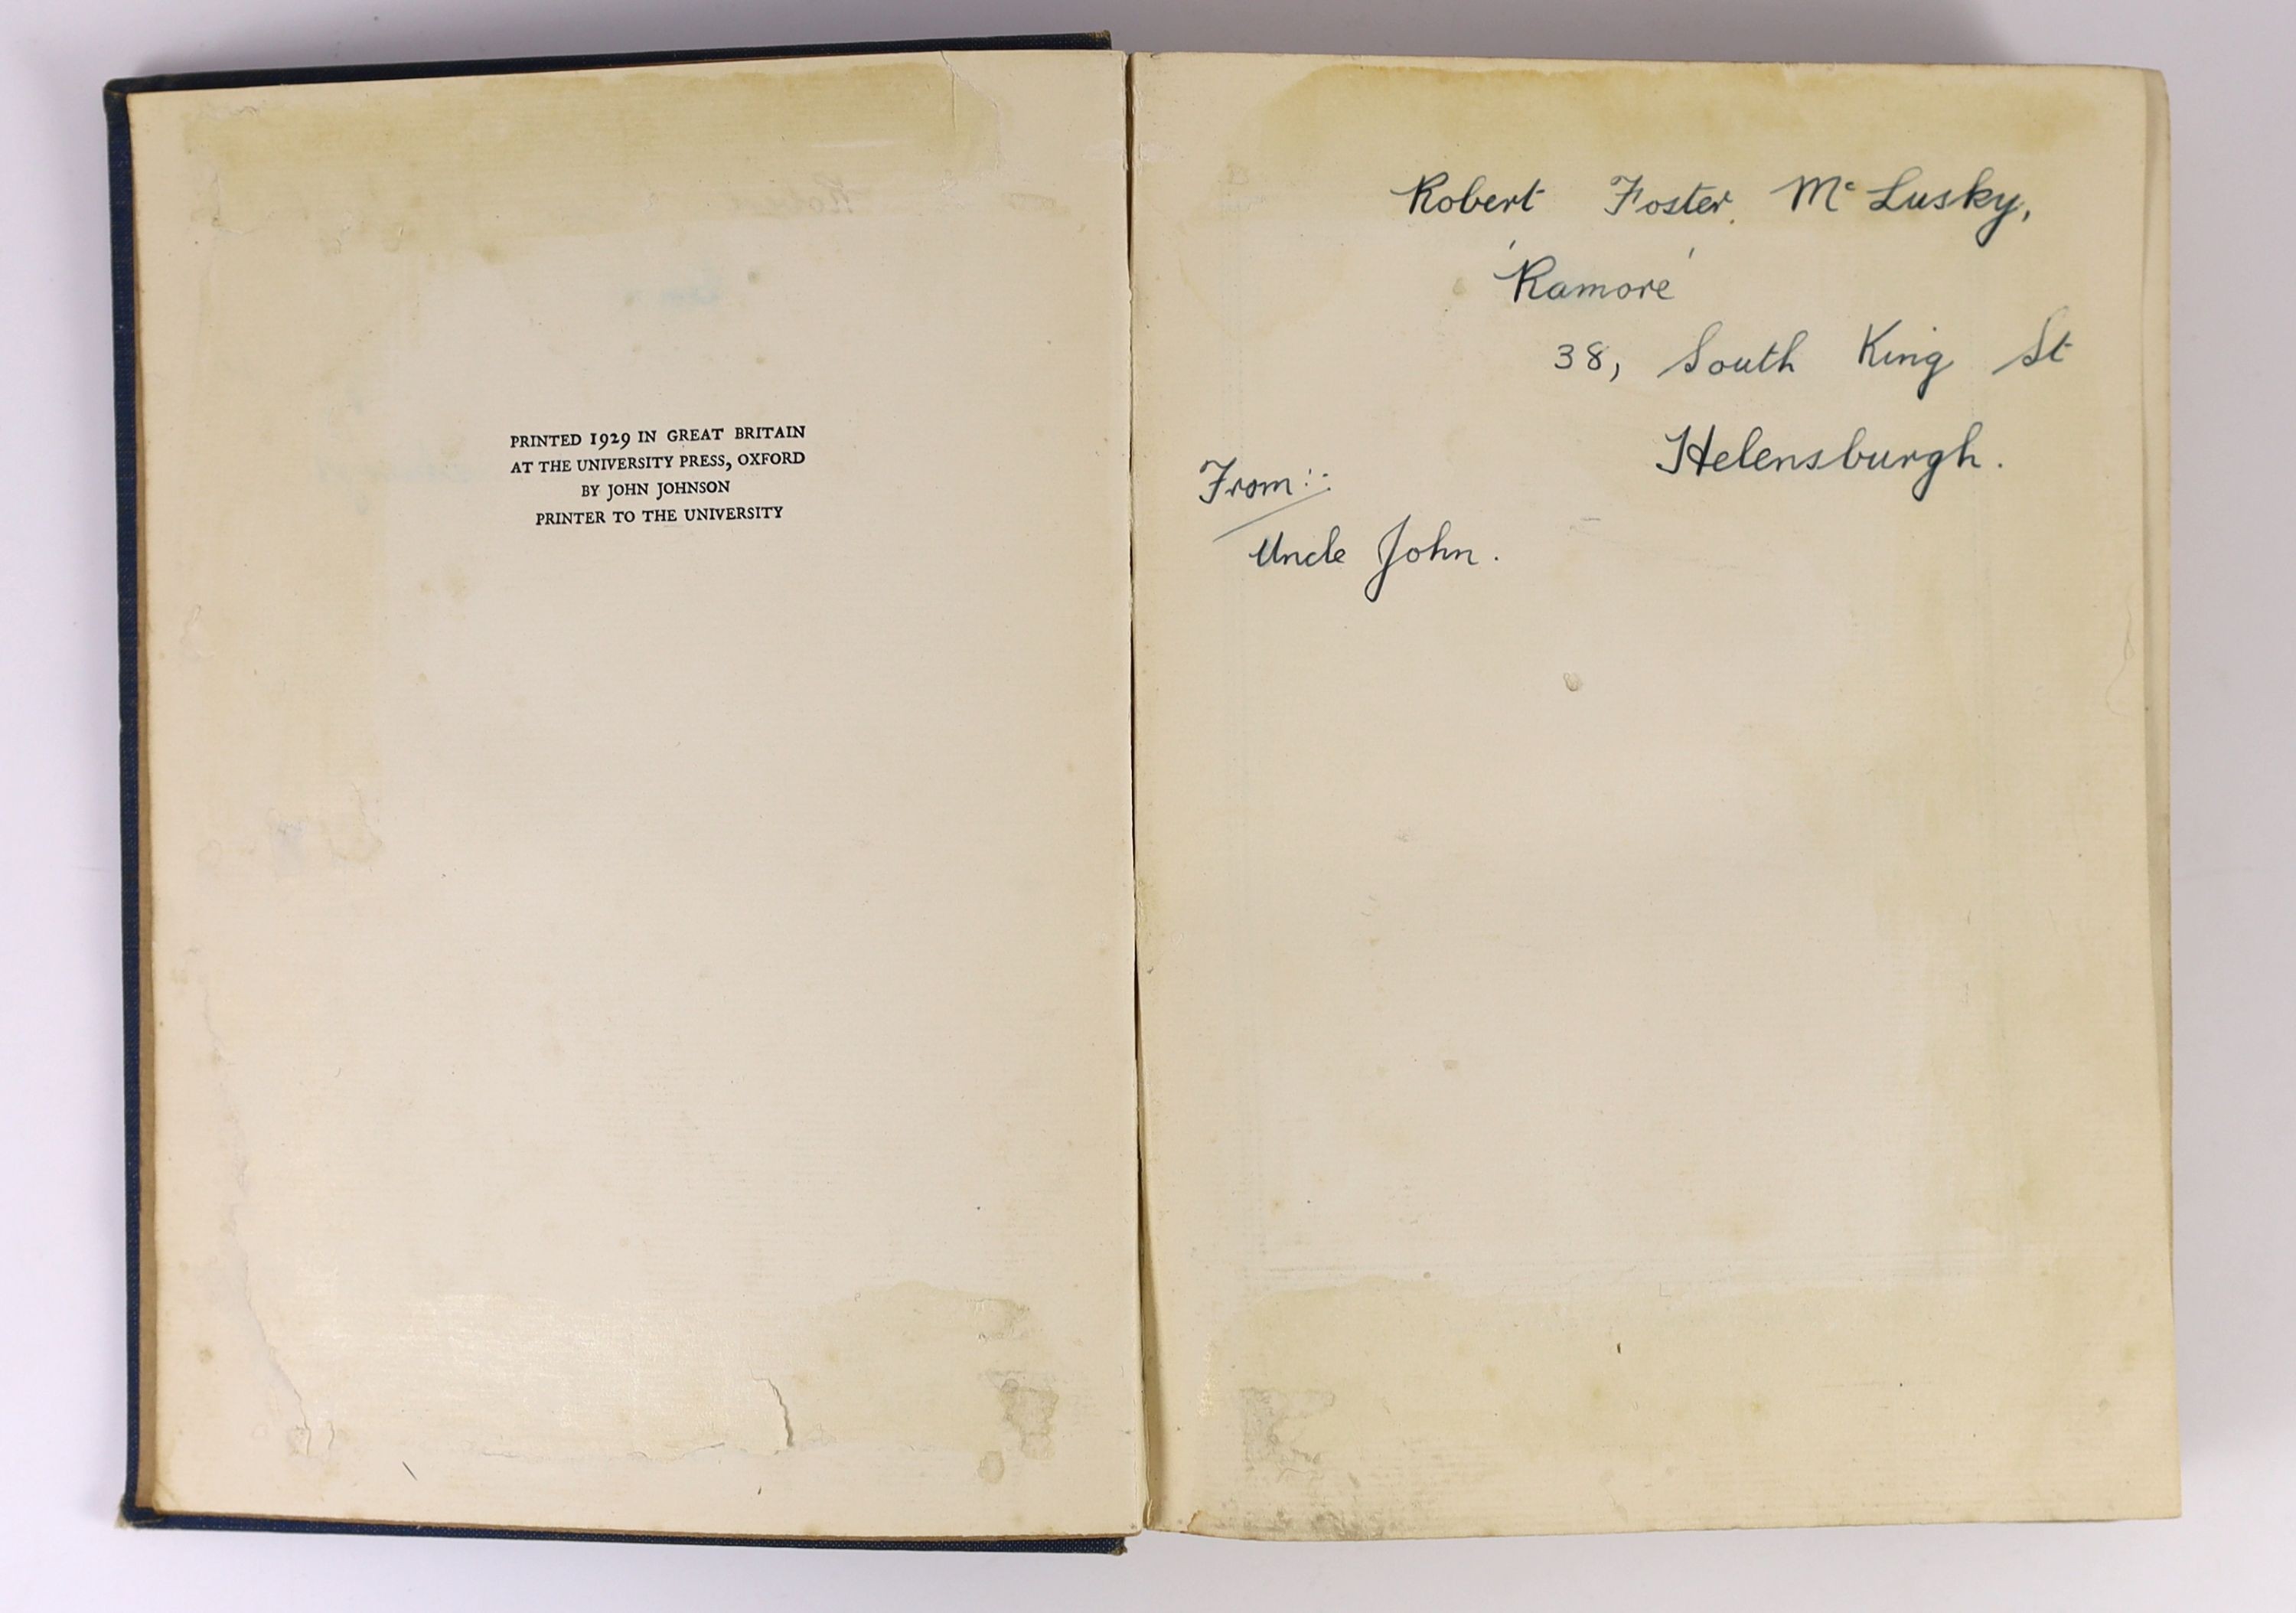 PRINTED 1929 IN GREAT BRITAIN
AT THE UNIVERSITY PRESS, OXFORD
BY JOHN JOHNSON
PRINTER TO THE UNIVERSITY
Robert Foster McLusky,
'Ramore'
38, South King St
Helensburgh.
From:-
Uncle John.